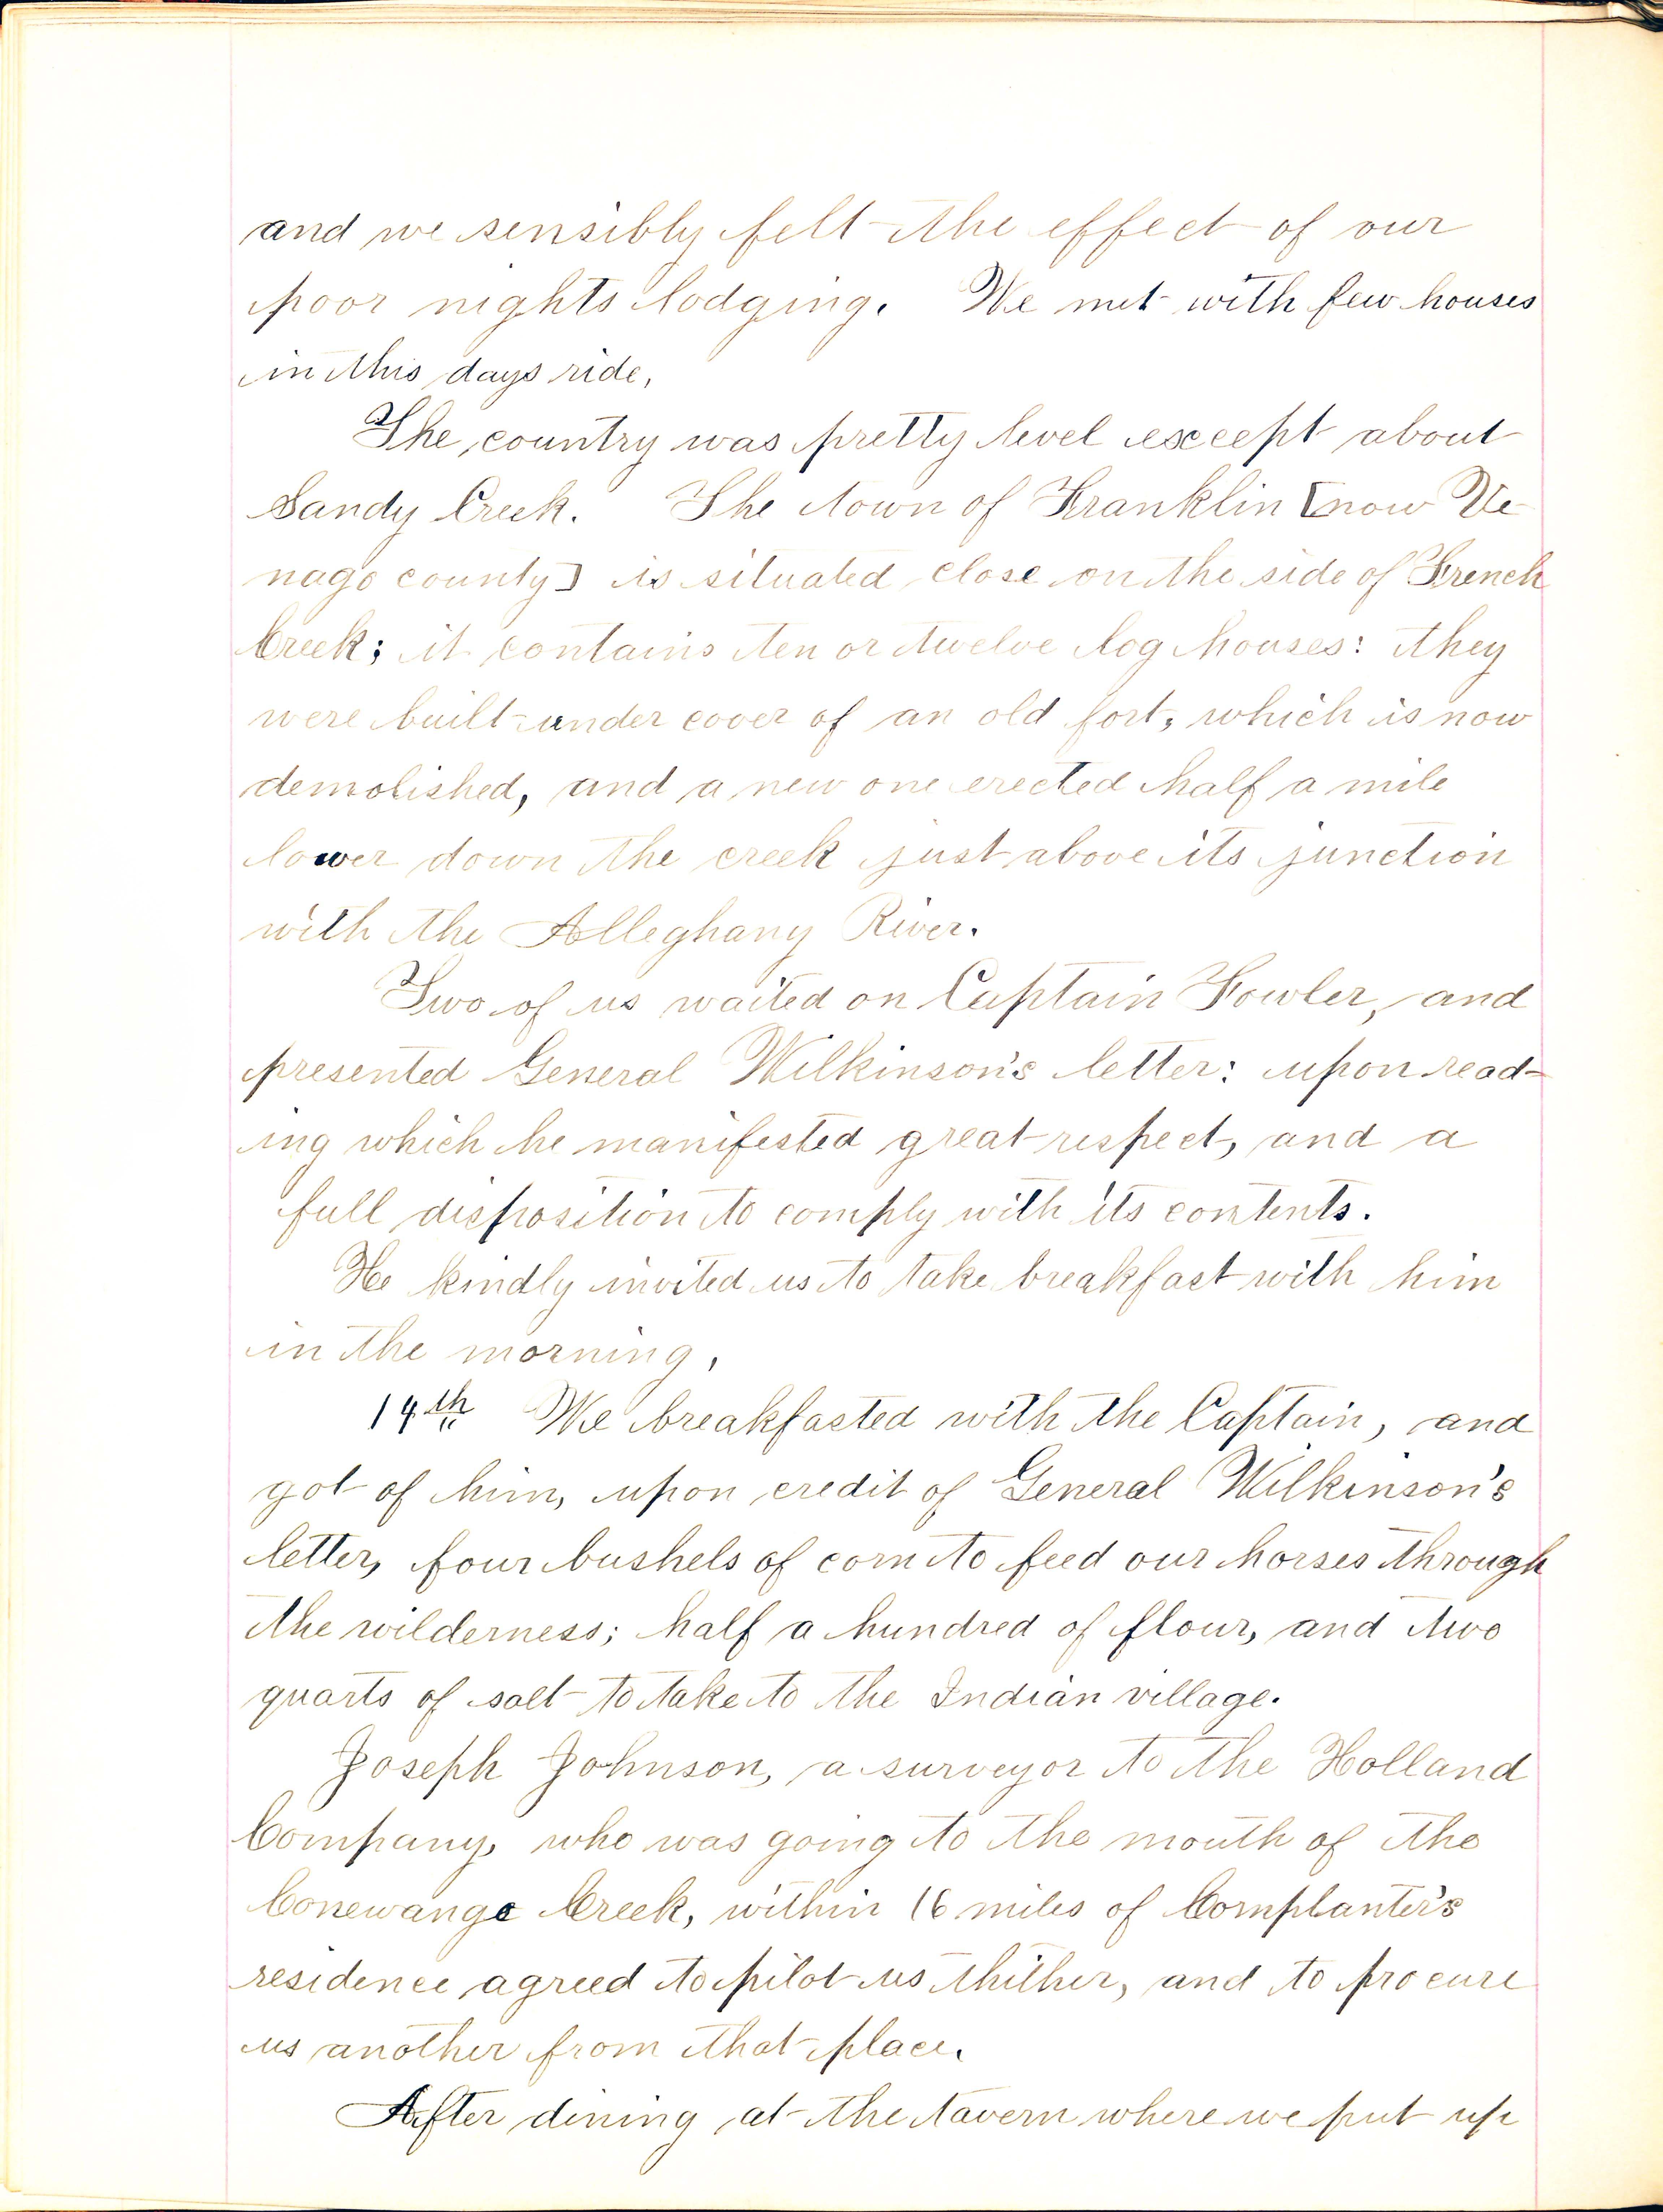 and we sensibly felt the effect of our
poor nights lodging. We met with few houses
in this days ride,
The country was pretty level except about
Sandy Creek. The town of Franklin [now Ve-
nago county] is situated close on the side of French
Creek; it contains ten or twelve log houses: they
were built under cover of an old fort, which is now
demolished, and a new one erected half a mile
lower down the creek just above its junction
with the Alleghany River.
Two of us waited on Captain Fowler, and
presented General Wilkinson's letter: upon read-
ing which he manifested great respect, and a
full disposition to comply with its contents.
He kindly invited us to take breakfast with him
in the morning,
14th We breakfasted with the Captain, and
got of him, upon credit of General Wilkinson's
letter, four bushels of corn to feed our horses through
the wilderness; half a hundred of flour, and two
quarts of salt to take to the Indian village.
Joseph Johnson, a surveyor to the Holland
Company, who was going to the mouth of the
Conewango Creek, within 16 miles of Cornplanter's
residence agreed to pilot us thither, and to procure
us another from that place.
After dining at the tavern where we put up